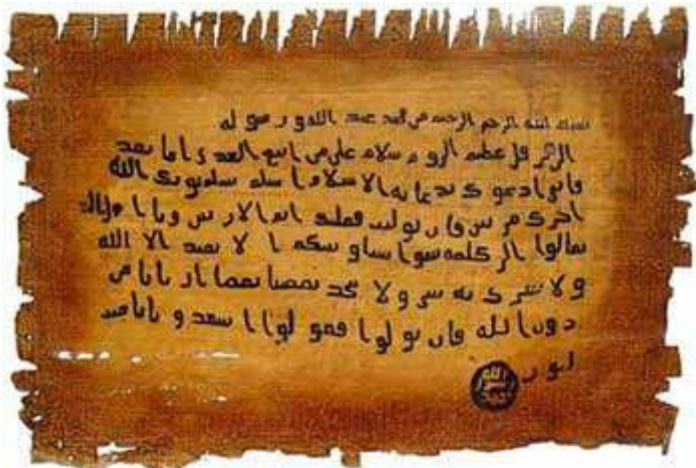 بسم الله الرحمن الرحيم من محمد عبد الله و رسوله
الى هرقل عظيم الروم سلام على من اتبع الهدى اما بعد
فاني ادعوك بدعاية الاسلام اسلم تسلم يوتك الله
اجرك مرتين فان توليت فعليك اثم الاريسين ويا اهل
تعالوا الى كلمة سوا بيننا وبينكم ا لا نعبد الا الله
ولا نشرك به شي ولا يتخذ بعضنا بعضا اربابا من
دون الله فان تولوا فقولوا اشهدوا بانا مس
لمون
الله
رسول
محمد